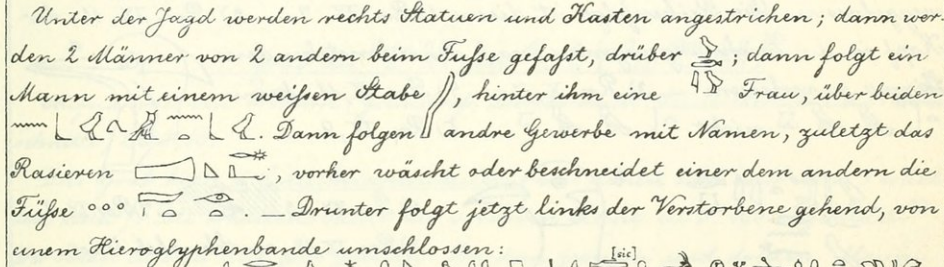 Unter der Jagd werden rechts Statuen und Kasten angestrichen; dann wer-
den 2 Männer von 2 andern beim Fuſse gefaſst, drüber ; dann folgt ein
Mann mit einem weiſsen Stabe , hinter ihm eine Frau, über beiden
. Dann folgen andre Gewerbe mit Namen, zuletzt das
Rasieren , vorher wäscht oder beschneidet einer dem andern die
Füſse . — Drunter folgt jetzt links der Verstorbene gehend, von
einem Hieroglyphenbande umschlossen:
[sic]